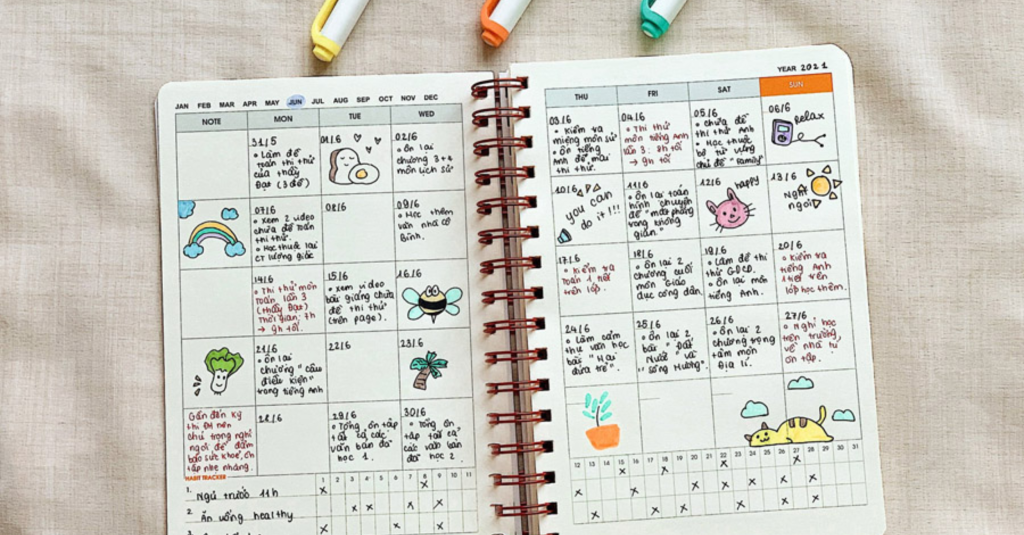 JAN FEB MAR APR MAY JUN JUL AUG SEP OCT NOV DEC
NOTE MON TUE WED
31/5
• Làm đề
toán thi thử
của thầy
Đạt (3 đề)
01/6
02/6
• ôn lại
chương 3+4
môn lịch sử
07/6
• Xem 2 video
chữa đề toán
thi thử.
• Học thuộc lại
CT lượng giác
08/6
09/6
• Học thêm
văn nhà cô
Bình.
14/6
• Thi thử môn
Toán lần 3
(thầy Đạt)
Thời gian: 7h
→ 9h tối.
15/6
• xem video
bài giảng chữa
đề thi thử
(trên page).
16/6
21/6
• ôn lại
chương "câu
điều kiện"
trong tiếng Anh
22/6
23/6
Gần đến kỳ
thi ĐH nên
chú trọng nghỉ
ngơi để đảm
bảo sức khoẻ, ôn
tập nhẹ nhàng.
28/6
29/6
• Tổng ôn tập
tất cả các
văn bản đã
học 1.
30/6
• Tổng ôn
tập tất cả
các văn bản
đã học 2.
HABIT TRACKER
1 2 3 4 5 6 7 8 9 10 11
1. Ngủ trước 11h
2. Ăn uống healthy
YEAR 2021
THU FRI SAT SUN
03/6
• Kiểm tra
miệng môn sử
• Ôn tiếng
Anh để mai
thi thử.
04/6
• Thi thử
môn tiếng Anh
lần 3: 8h tối
→ 9h tối
05/6
• chữa đề
thi thử Anh
• Học thuộc
bộ từ vựng
chủ đề "Family"
06/6
Relax
10/6
you can
do it!!!
11/6
• Ôn lại toán
hình chuyên
đề "mặt phẳng
trong không
gian"
12/6
happy
13/6
Nghỉ
ngơi
17/6
• Kiểm tra
Toán 1 tiết
trên lớp.
18/6
• Ôn lại 2
chương cuối
môn Giáo
dục công dân.
19/6
• Làm đề thi
thử GDCD.
• Ôn lại môn
tiếng Anh.
20/6
• Kiểm tra
tiếng Anh
1 tiết trên
lớp học thêm.
24/6
• Làm cảm
thụ văn học
bài "Hai
đứa trẻ".
25/6
• Ôn lại 2
bài "Đất
Nước" và
"Sông Hương".
26/6
• Ôn lại 2
chương trọng
tâm môn
Địa lí.
27/6
• Nghỉ học
trên trường,
về nhà tự
ôn tập.
12 13 14 15 16 17 18 19 20 21 22 23 24 25 26 27 28 29 30 31